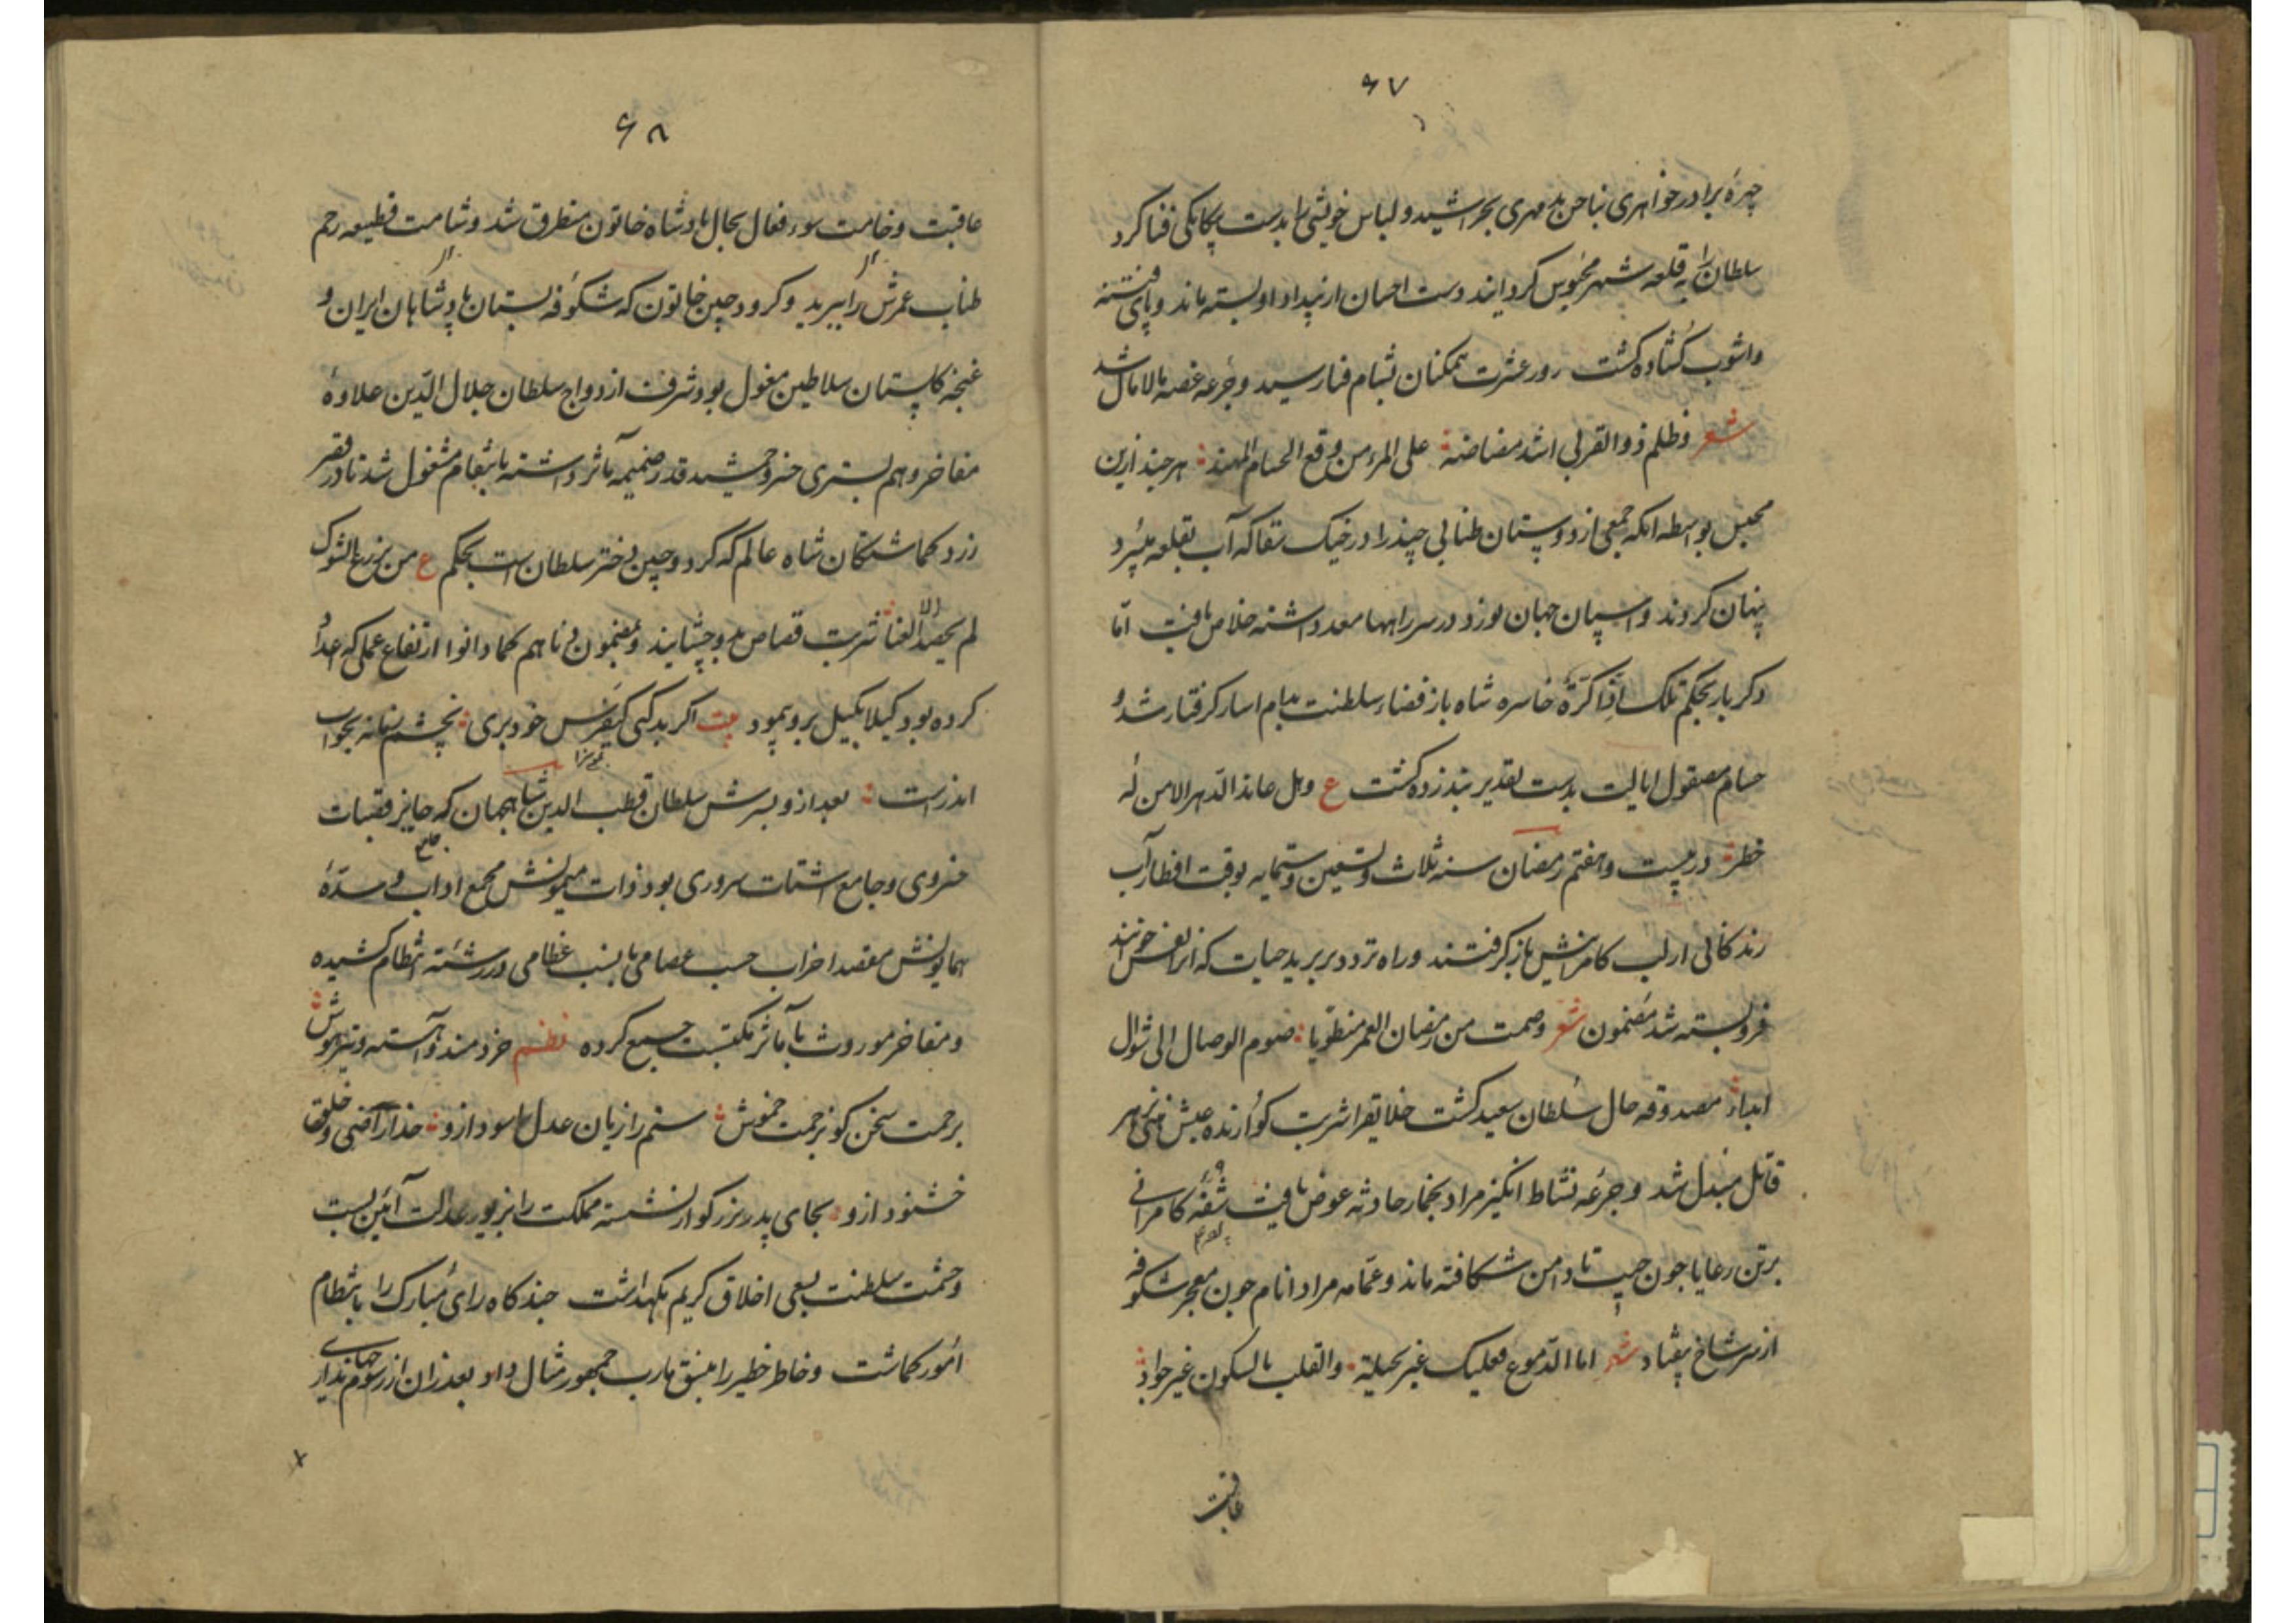 ۶۷
چهرهٔ برادر خواهری بناخن بدمهری بخراشید و لباس خویشی را بدست یکانکی فنا کرد
سلطان را به قلعه شهر محبوس کردانید دست احسان از بیداد او بسته ماند و پای فتنه
واشوب کشاده کشت روز عشرت همکنان بشام فنا رسید و جرعه غصه مالامال شد
شعر وظلم ذو القربی اشد مضاضة علی المرء من وقع الحسام المهند هر چند ازین
بواسطه انکه جمعی از دوستان طنابی چند را در خیک سقا که آب بقلعه میبرد
پنهان کردند و اسپان جهان نورد در سر راهها معد داشته خلاص یافت امّا
دکر بار بحکم تلک اذا کرّة خاسره شاه باز فضاء سلطنت بدام اسار کرفتار شد و
حسام مصقول ایالت بدست تقدیر زده کشت ع وهل عاند الدّهر الا من له
خطر در بیست و هفتم رمضان سنه ثلاث وتسعین وستمایه بوقت افطار آب
زندکانی از لب کامرانیش باز کرفتند و راه تردد برید حیات که انرا نفس خوانند
فرو بسته شد مضمون شعر وصمت من رمضان العمر منطویا صوم الوصال الی شوال
ابداد مصدوقه حال سلطان سعید کشت خلایق را شربت کوارنده عیش هنی بزهر
قاتل مبدل شد و جرعه نشاط انکیز مراد بخمار حادثه عوض یافت شقهٔ کامرانی
برتن رعایا چون جیب تا دامن شکافته ماند و عمامه مراد انام چون معجر شکوفه
از سر شاخ بیفتاد شعر اما الدّموع فعلیک غیر بخیلة والقلب بالسکون غیر جواد
عاقبت
۶۸
عاقبت وخامت سوء فعال بحال پادشاه خاتون متطرق شد و شامت قطیعه رحم
طناب عمرش را ببرید و کردوجین خاتون که شکوفه بستان پادشاهان ایران و
غنچه کلستان سلاطین مغول بود و شرف ازدواج سلطان جلال الدّین علاوهٔ
مفاخر و هم بستری خسرو جمشید قدر ضمیمه مآثر داشته بانتقام مشغول شد تا در قصر
زرد کماشتکان شاه عالم که کردوجین دختر سلطان است بحکم ع من یزرع الشوک
لم یحصد العنا شربت قصاص بدو چشانیدند و بمضمون دناهم کما دانوا ارتفاع عملی که اعداد
کرده بود کیلا بکیل برو پیمود بیت اکر بد کنی کیفرش خود بری نه چشم زمانه بخواب
اندرست بعد ازو پسرش سلطان قطب الدین شاه جهان که حایز قصبات
خسروی و جامع اشتات سروری بود ذات میمونش مجمع اداب و سدّهٔ
همایونش مقصد احزاب حسب عصامی با نسب عظامی در رشته انتظام کشیده
و مفاخر موروث با مآثر مکتسب جمع کرده نظم خردمند و آهسته و تیزهوش
برحمت سخن کو بزحمت خموش ستم را زیان عدل را سود ازو خدا راضی و خلق
خشنود ازو بجای پدر بزرکوار نشسته مملکت را بزیور عدالت آئین بست
وحشمت سلطنت بسعی اخلاق کریم نکهداشت چند کاه رای مبارک را بانتظام
امور کماشت و خاطر خطیر را بنسق مآرب جمهور مثال داد بعد زان از رسوم جهانداری